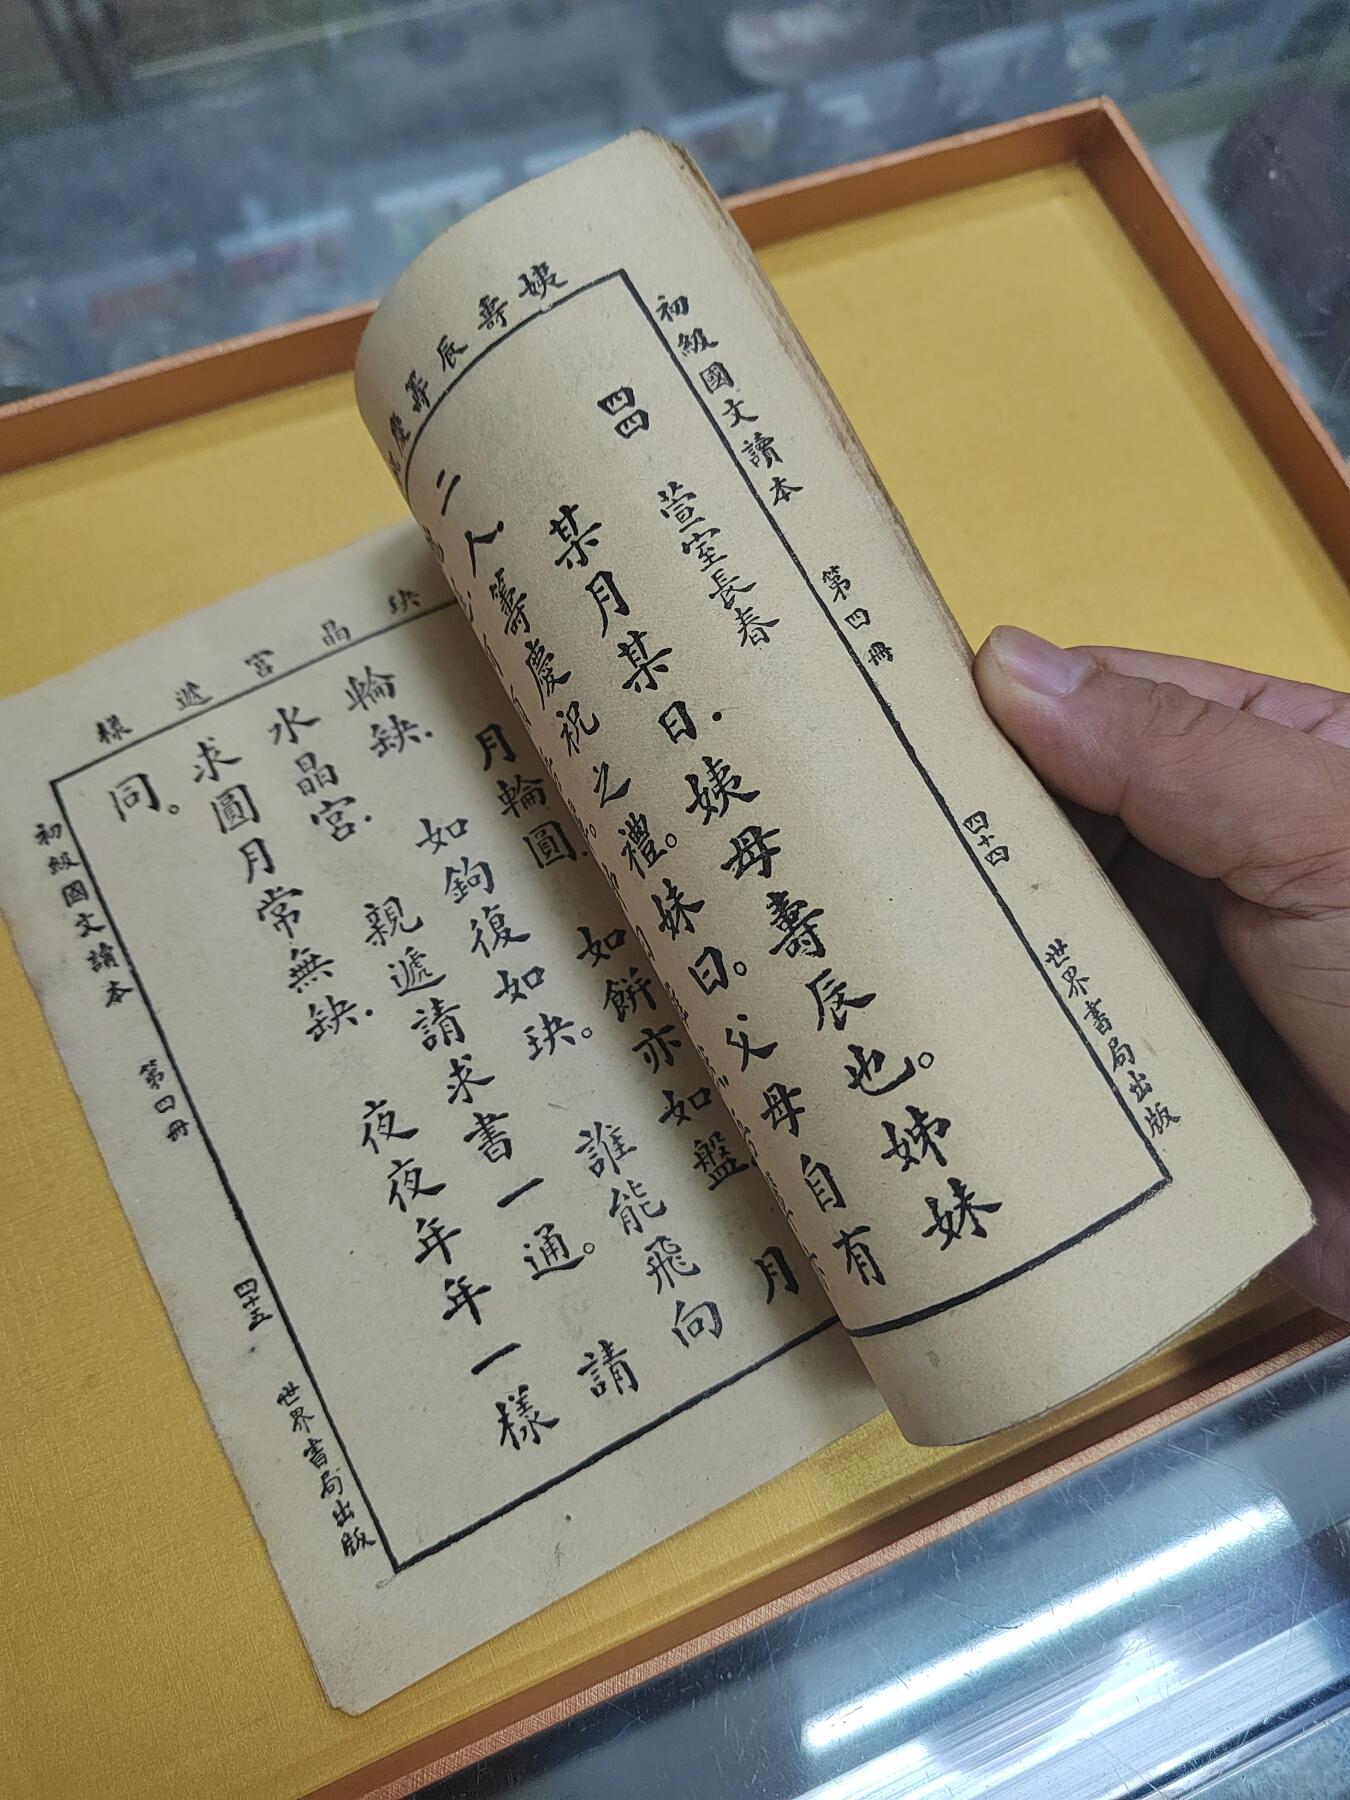 初級國文讀本 第四冊 四十四 世界書局出版
姨壽辰籌慶
四四 萱室長春
某月某日.姨母壽辰也。姊妹
二人.籌慶祝之禮。妹曰。父母自有
玦晶宮遞樣
月輪圓. 如餅亦如盤. 月
輪缺. 如鉤復如玦。 誰能飛向
水晶宮. 親遞請求書一通。 請
求圓月常無缺. 夜夜年年一樣
同。
初級國文讀本 第四冊 四十五 世界書局出版